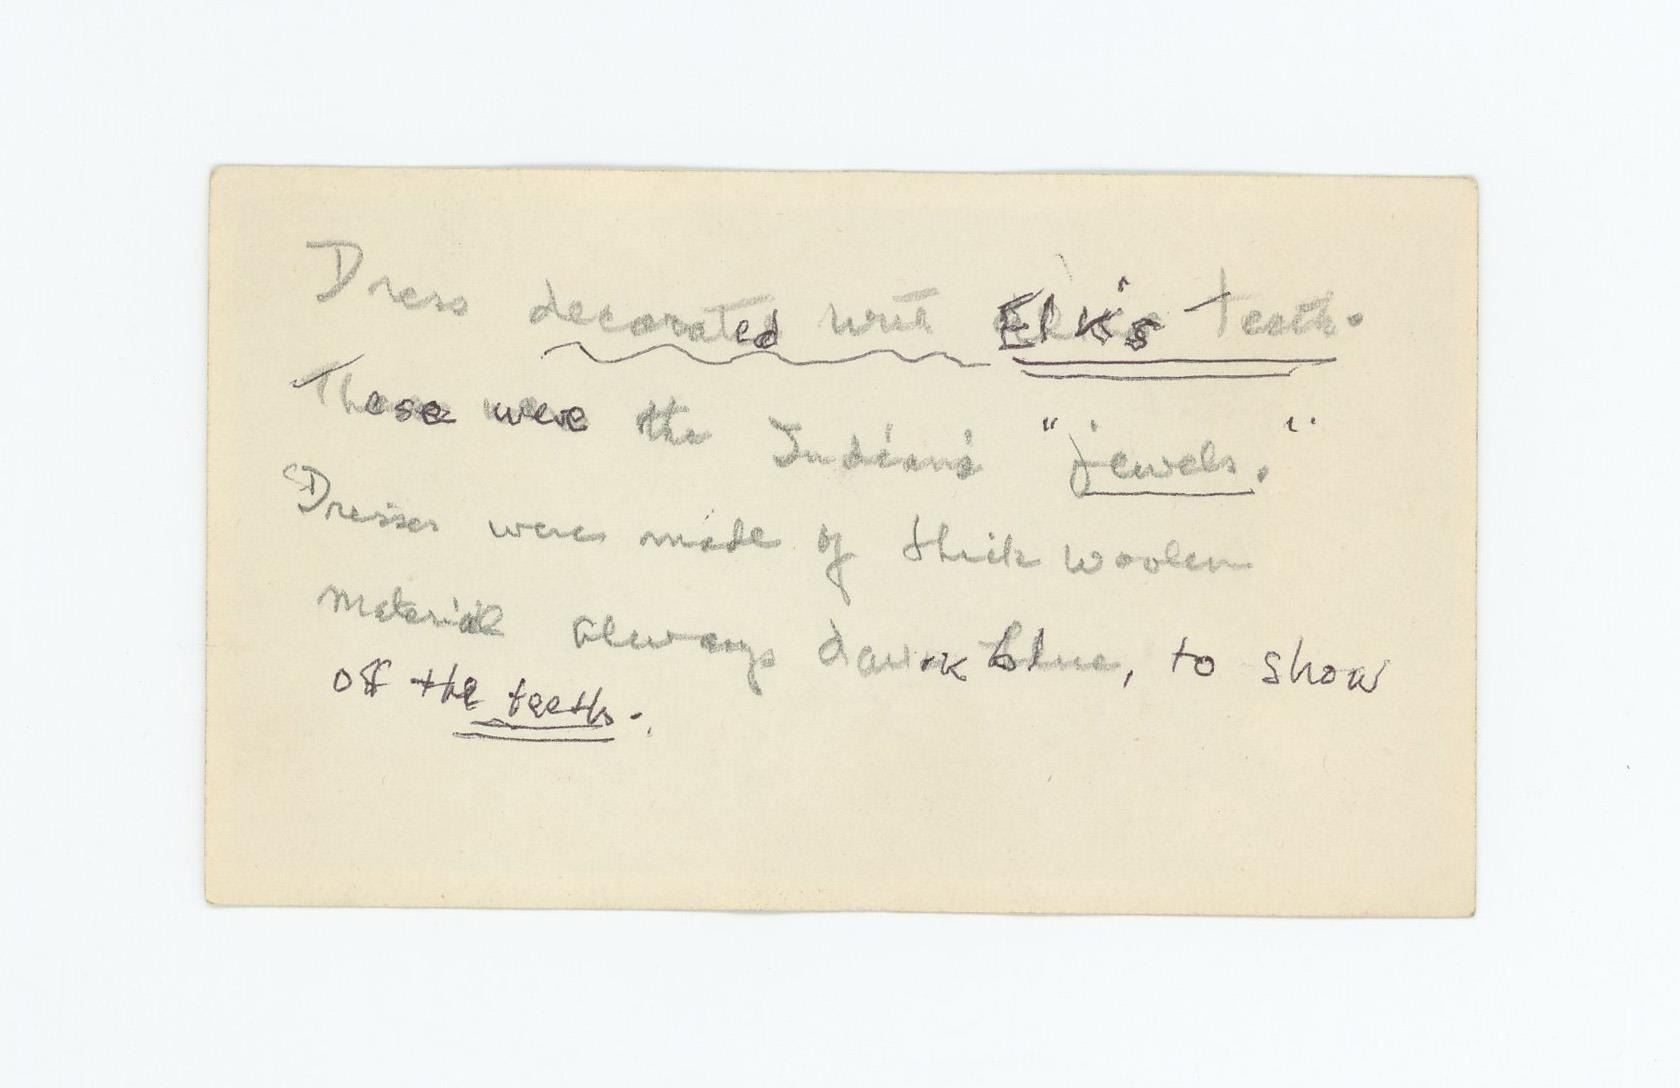 Dress decorated with Elk's teeth.
These were the Indians' "jewels."
Dresses were made of thick woolen
material always dark blue, to show
off the teeth.